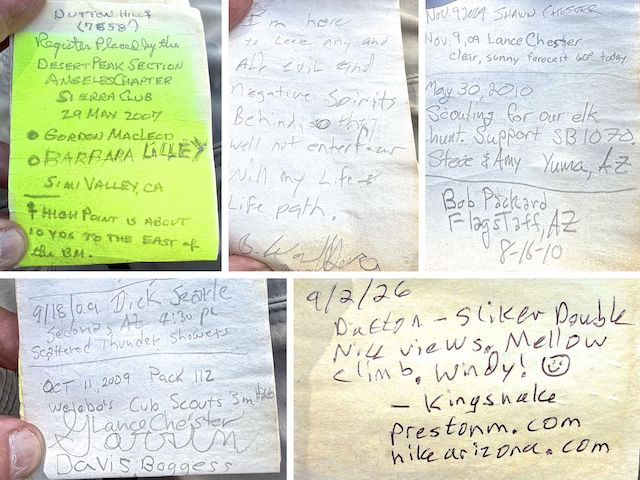 DUTTON HILL
(7858')
Register Placed by the
DESERT PEAK SECTION
ANGELES CHAPTER
SIERRA CLUB
29 MAY 2007
GORDON MACLEOD
BARBARA LILLEY
SIMI VALLEY, CA
HIGH POINT IS ABOUT
10 YDS TO THE EAST of
the BM.
I'm here
to leave any and
All evil and
Negative Spirits
Behind, so they
well not enter
Nill my Life &
Life path.
NOV. 9 2009 SHAWN CHESTER
Nov. 9, 09 Lance Chester
clear, sunny forecast 60° today
May 30, 2010
Scouting for our elk
hunt. Support SB1070.
Steve & Amy Yuma, AZ
Bob Packard
Flagstaff, AZ
8-16-10
9/18/09 Dick Searle
4:30 pm
Scattered Thunder showers
OCT 11 2009 Pack 112
Webelo's Cub Scouts
Lance Chester
Davis, Boggess
9/2/26
Dutton - Sliker Double
Nice views. Mellow
climb. Windy!
- Kingsnake
prestonm.com
hikearizona.com